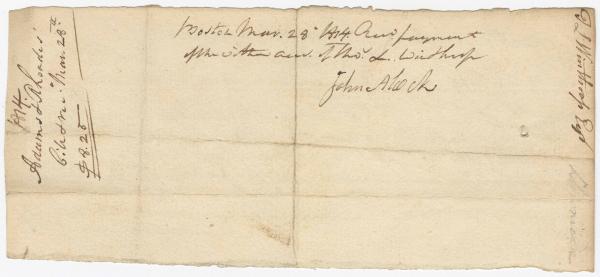 Boston Mar. 28th 1814. Recd payment
of the within acct. of Thos. L. Winthrop
John A
1814
Adams & Rhoades'
Mar. 28th
$8.25
T L Winthrop Esqr